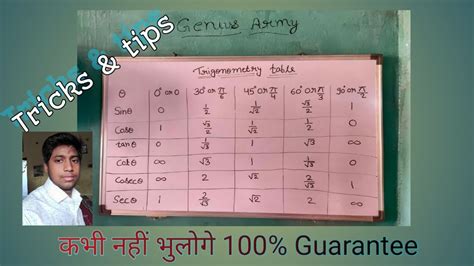 Genius Army
Tricks & tips
Trigonometry table
θ 0° or 0 30° or π/6 45° or π/4 60° or π/3 90° or π/2
Sinθ 0 1/2 1/√2 √3/2 1
Cosθ 1 √3/2 1/√2 1/2 0
tanθ 0 1/√3 1 √3 ∞
Cotθ ∞ √3 1 1/√3 0
Cosecθ ∞ 2 √2 2/√3 1
Secθ 1 2/√3 √2 2 ∞
कभी नहीं भुलोगे 100% Guarantee